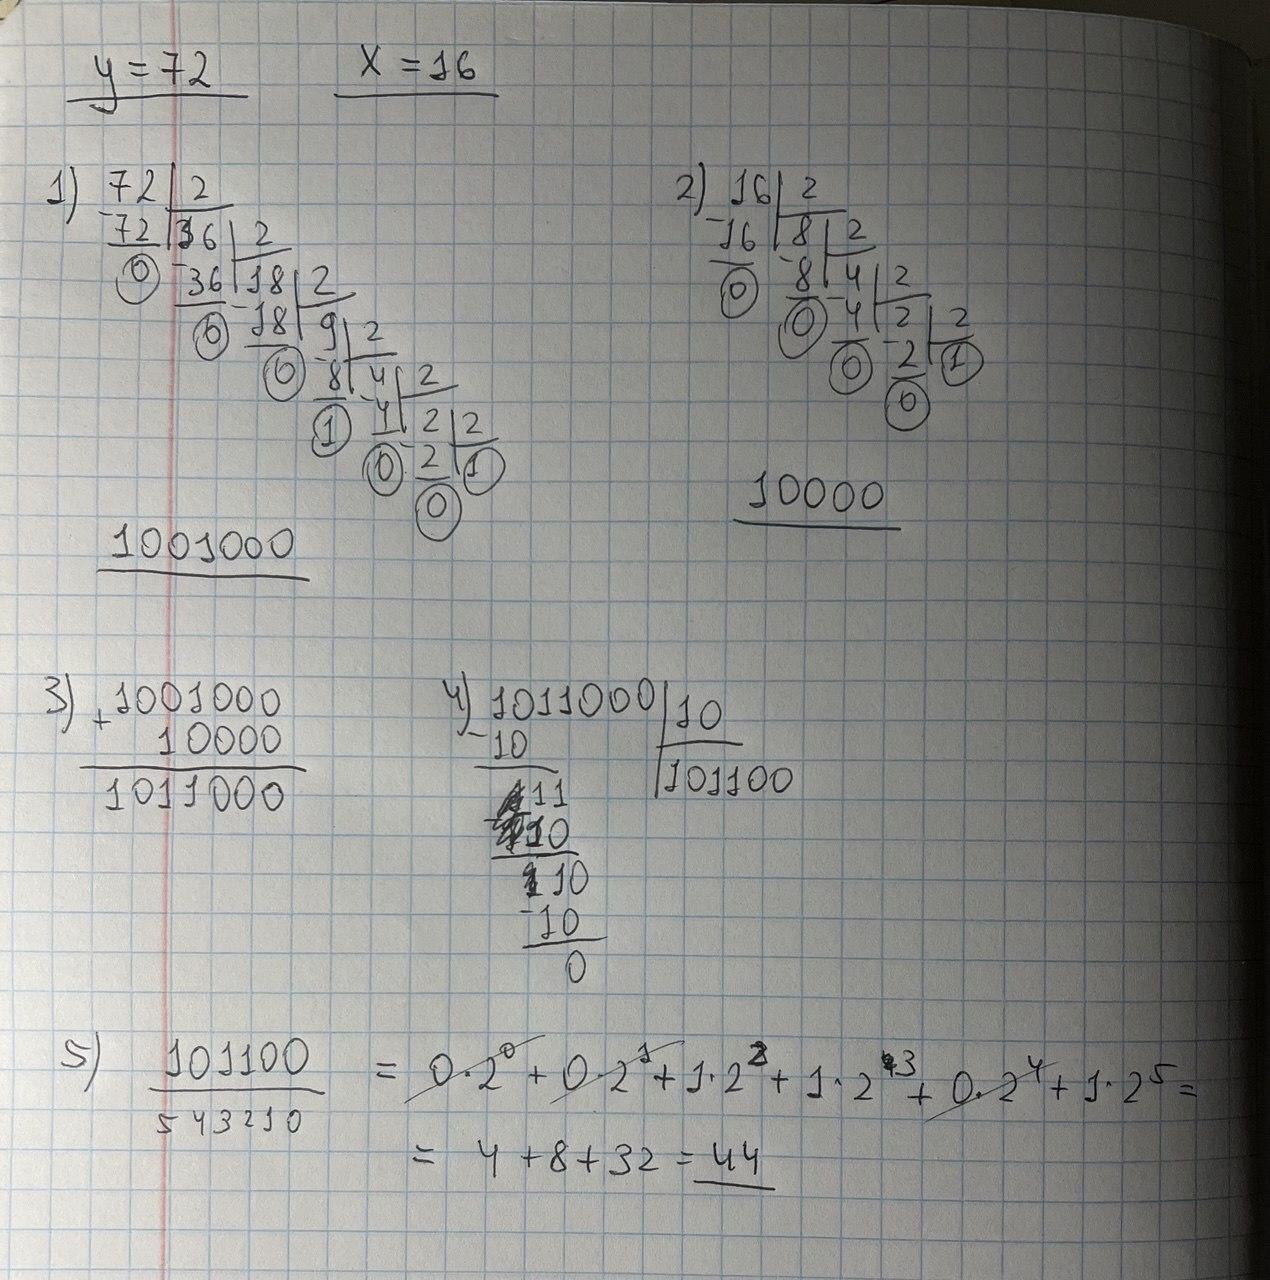 y = 72 X = 16
1) 72 2
-72 36 2
0 -36 18 2
0 -18 9 2
0 -8 4 2
1 -4 2 2
0 -2 1
0
1001000
2) 16 2
-16 8 2
0 -8 4 2
0 -4 2 2
0 -2 1
0
10000
3) 1001000
+ 10000
1011000
4) 1011000 10
-10 101100
11
10
10
-10
0
5) 101100 = 0·2⁰ + 0·2¹ + 1·2² + 1·2³ + 0·2⁴ + 1·2⁵ =
543210
= 4 + 8 + 32 = 44